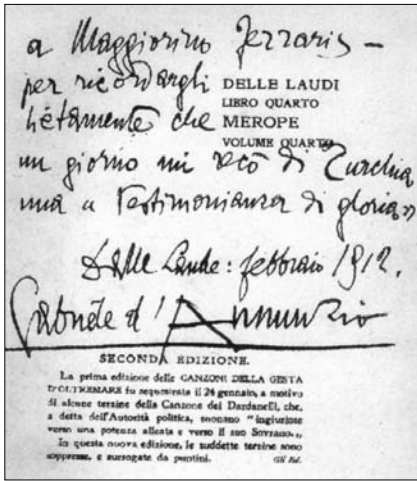 a Maggiorino Ferraris –
per ricordargli
DELLE LAUDI
LIBRO QUARTO
lietamente che
MEROPE
VOLUME QUARTO
un giorno mi recò di Turchia
una « testimonianza di gloria »
Dalle Lande : febbraio 1912.
Gabriele d'Annunzio
SECONDA EDIZIONE.
La prima edizione delle CANZONI DELLA GESTA
D'OLTREMARE fu sequestrata il 24 gennaio, a motivo
di alcune terzine della Canzone dei Dardanelli, che,
a detta dell'Autorità politica, suonano "ingiuriose
verso una potenza alleata e verso il suo Sovrano„.
In questa nuova edizione, le suddette terzine sono
soppresse, e surrogate da puntini.
Gli Ed.